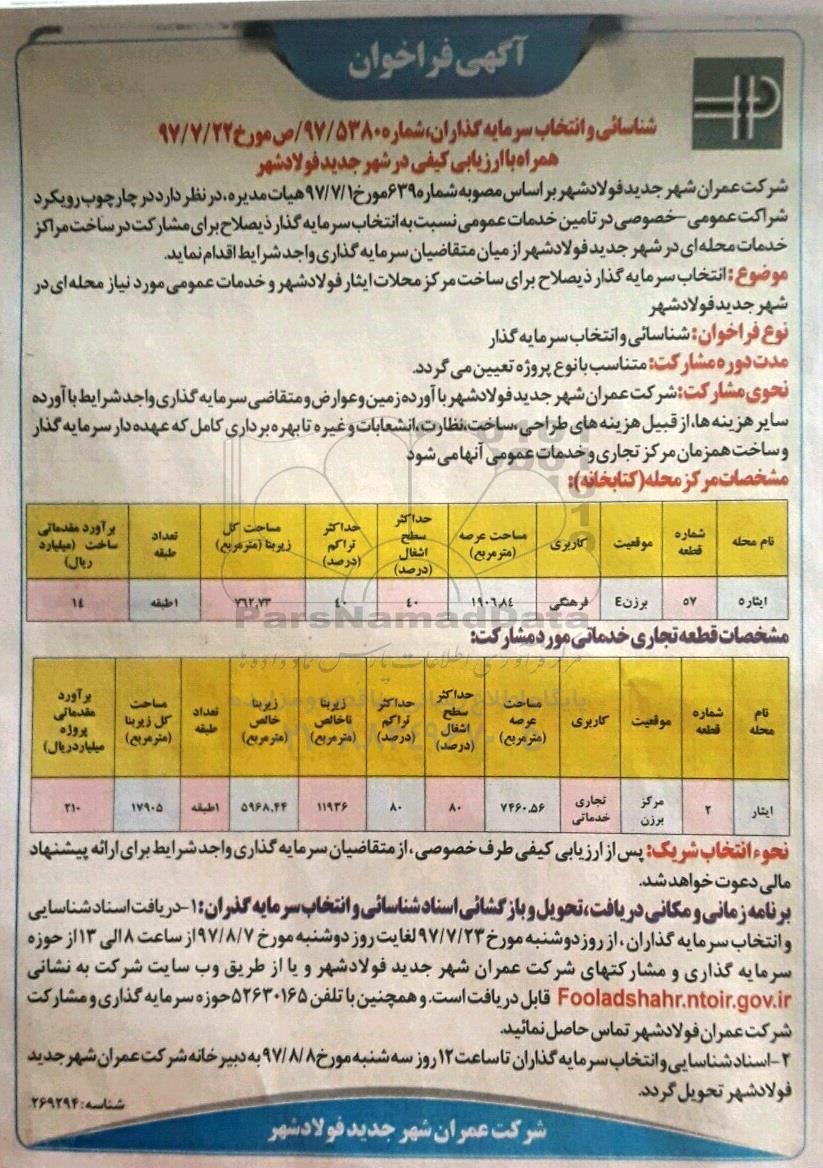 آگهی فراخوان
شناسائی و انتخاب سرمایه گذاران، شماره ۹۷/۵۳۸۰/ص مورخ ۹۷/۷/۲۲
همراه با ارزیابی کیفی در شهر جدید فولادشهر
شرکت عمران شهر جدید فولادشهر بر اساس مصوبه شماره ۶۳۹ مورخ ۹۷/۷/۱ هیات مدیره، در نظر دارد در چارچوب رویکرد
شراکت عمومی-خصوصی در تامین خدمات عمومی نسبت به انتخاب سرمایه گذار ذیصلاح برای مشارکت در ساخت مراکز
خدمات محله ای در شهر جدید فولادشهر از میان متقاضیان سرمایه گذاری واجد شرایط اقدام نماید.
موضوع: انتخاب سرمایه گذار ذیصلاح برای ساخت مرکز محلات ایثار فولادشهر و خدمات عمومی مورد نیاز محله ای در
شهر جدید فولادشهر
نوع فراخوان: شناسائی و انتخاب سرمایه گذار
مدت دوره مشارکت: متناسب با نوع پروژه تعیین می گردد.
نحوی مشارکت: شرکت عمران شهر جدید فولادشهر با آورده زمین و عوارض و متقاضی سرمایه گذاری واجد شرایط با آورده
سایر هزینه ها، از قبیل هزینه های طراحی، ساخت، نظارت، انشعابات و غیره تا بهره برداری کامل که عهده دار سرمایه گذار
و ساخت همزمان مرکز تجاری و خدمات عمومی آنها می شود
مشخصات مرکز محله (کتابخانه):
نام محله شماره قطعه موقعیت کاربری مساحت عرصه (مترمربع) حداکثر سطح اشغال (درصد) حداکثر تراکم (درصد) مساحت کل زیربنا (مترمربع) تعداد طبقه برآورد مقدماتی ساخت (میلیارد ریال)
ایثار۵ ۵۷ برزن٤ فرهنگی ۱۹۰۶,۸٤ ٤۰ ٤۰ ۷۶۲,۷۳ ۱طبقه ۱٤
ParsNamadData
مشخصات قطعه تجاری خدماتی مورد مشارکت:
نام محله شماره قطعه موقعیت کاربری مساحت عرصه (مترمربع) حداکثر سطح اشغال (درصد) حداکثر تراکم (درصد) زیربنا ناخالص (مترمربع) زیربنا خالص (مترمربع) تعداد طبقه مساحت کل زیربنا (مترمربع) برآورد مقدماتی پروژه میلیاردریال)
ایثار ۲ مرکز برزن تجاری خدماتی ۷۴۶۰.۵۶ ۸۰ ۸۰ ۱۱۹۳۶ ۵۹۶۸,۴۴ ۱طبقه ۱۷۹۰۵ ۲۱۰
نحوه انتخاب شریک: پس از ارزیابی کیفی طرف خصوصی، از متقاضیان سرمایه گذاری واجد شرایط برای ارائه پیشنهاد
مالی دعوت خواهد شد.
برنامه زمانی و مکانی دریافت، تحویل و بازگشائی اسناد شناسائی و انتخاب سرمایه گذران: ۱-دریافت اسناد شناسایی
و انتخاب سرمایه گذاران، از روز دوشنبه مورخ ۹۷/۷/۲۳ لغایت روز دوشنبه مورخ ۹۷/۸/۷ از ساعت ۸ الی ۱۳ از حوزه
سرمایه گذاری و مشارکتهای شرکت عمران شهر جدید فولادشهر و یا از طریق وب سایت شرکت به نشانی
Fooladshahr.ntoir.gov.ir قابل دریافت است. و همچنین با تلفن ۵۲۶۳۰۱۶۵ حوزه سرمایه گذاری و مشارکت
شرکت عمران فولادشهر تماس حاصل نمائید.
۲-اسناد شناسایی و انتخاب سرمایه گذاران تا ساعت ۱۲ روز سه شنبه مورخ ۹۷/۸/۸ به دبیرخانه شرکت عمران شهر جدید
فولادشهر تحویل گردد.
شناسه: ۲۶۹۲۹۴
شرکت عمران شهر جدید فولادشهر